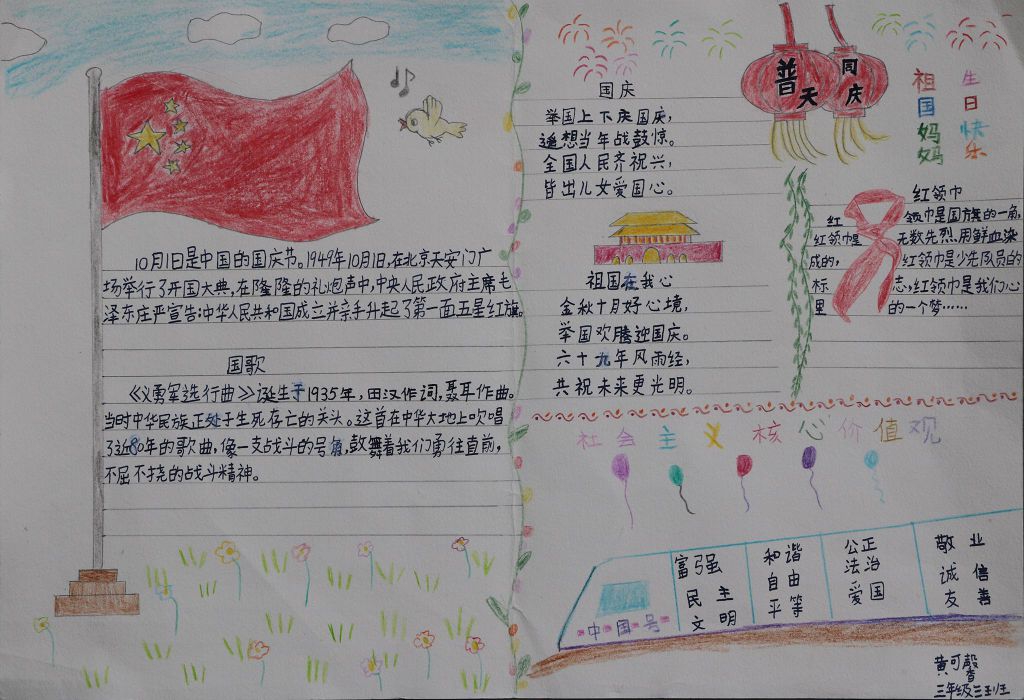 10月1日是中国的国庆节。1949年10月1日,在北京天安门广
场举行了开国大典,在隆隆的礼炮声中,中央人民政府主席毛
泽东庄严宣告:中华人民共和国成立并亲手升起了第一面五星红旗。
国歌
《义勇军进行曲》诞生于1935年,田汉作词,聂耳作曲。
当时中华民族正处于生死存亡的关头。这首在中华大地上吹唱
了近80年的歌曲,像一支战斗的号角,鼓舞着我们勇往直前,
不屈不挠的战斗精神。
国庆
举国上下庆国庆,
遥想当年战鼓惊。
全国人民齐祝兴,
皆出儿女爱国心。
祖国在我心
金秋十月好心境,
举国欢腾迎国庆。
六十九年风雨经,
共祝未来更光明。
普天
同庆
祖国妈妈
生日快乐
红领巾
红领巾是国旗的一角,
红领巾是无数先烈用鲜血染
成的,红领巾是少先队员的
标志,红领巾是我们心
里的一个梦……
社会主义核心价值观
中国号
富强
民主
文明
和谐
自由
平等
公正
法治
爱国
敬业
诚信
友善
黄可馨
三年级三班